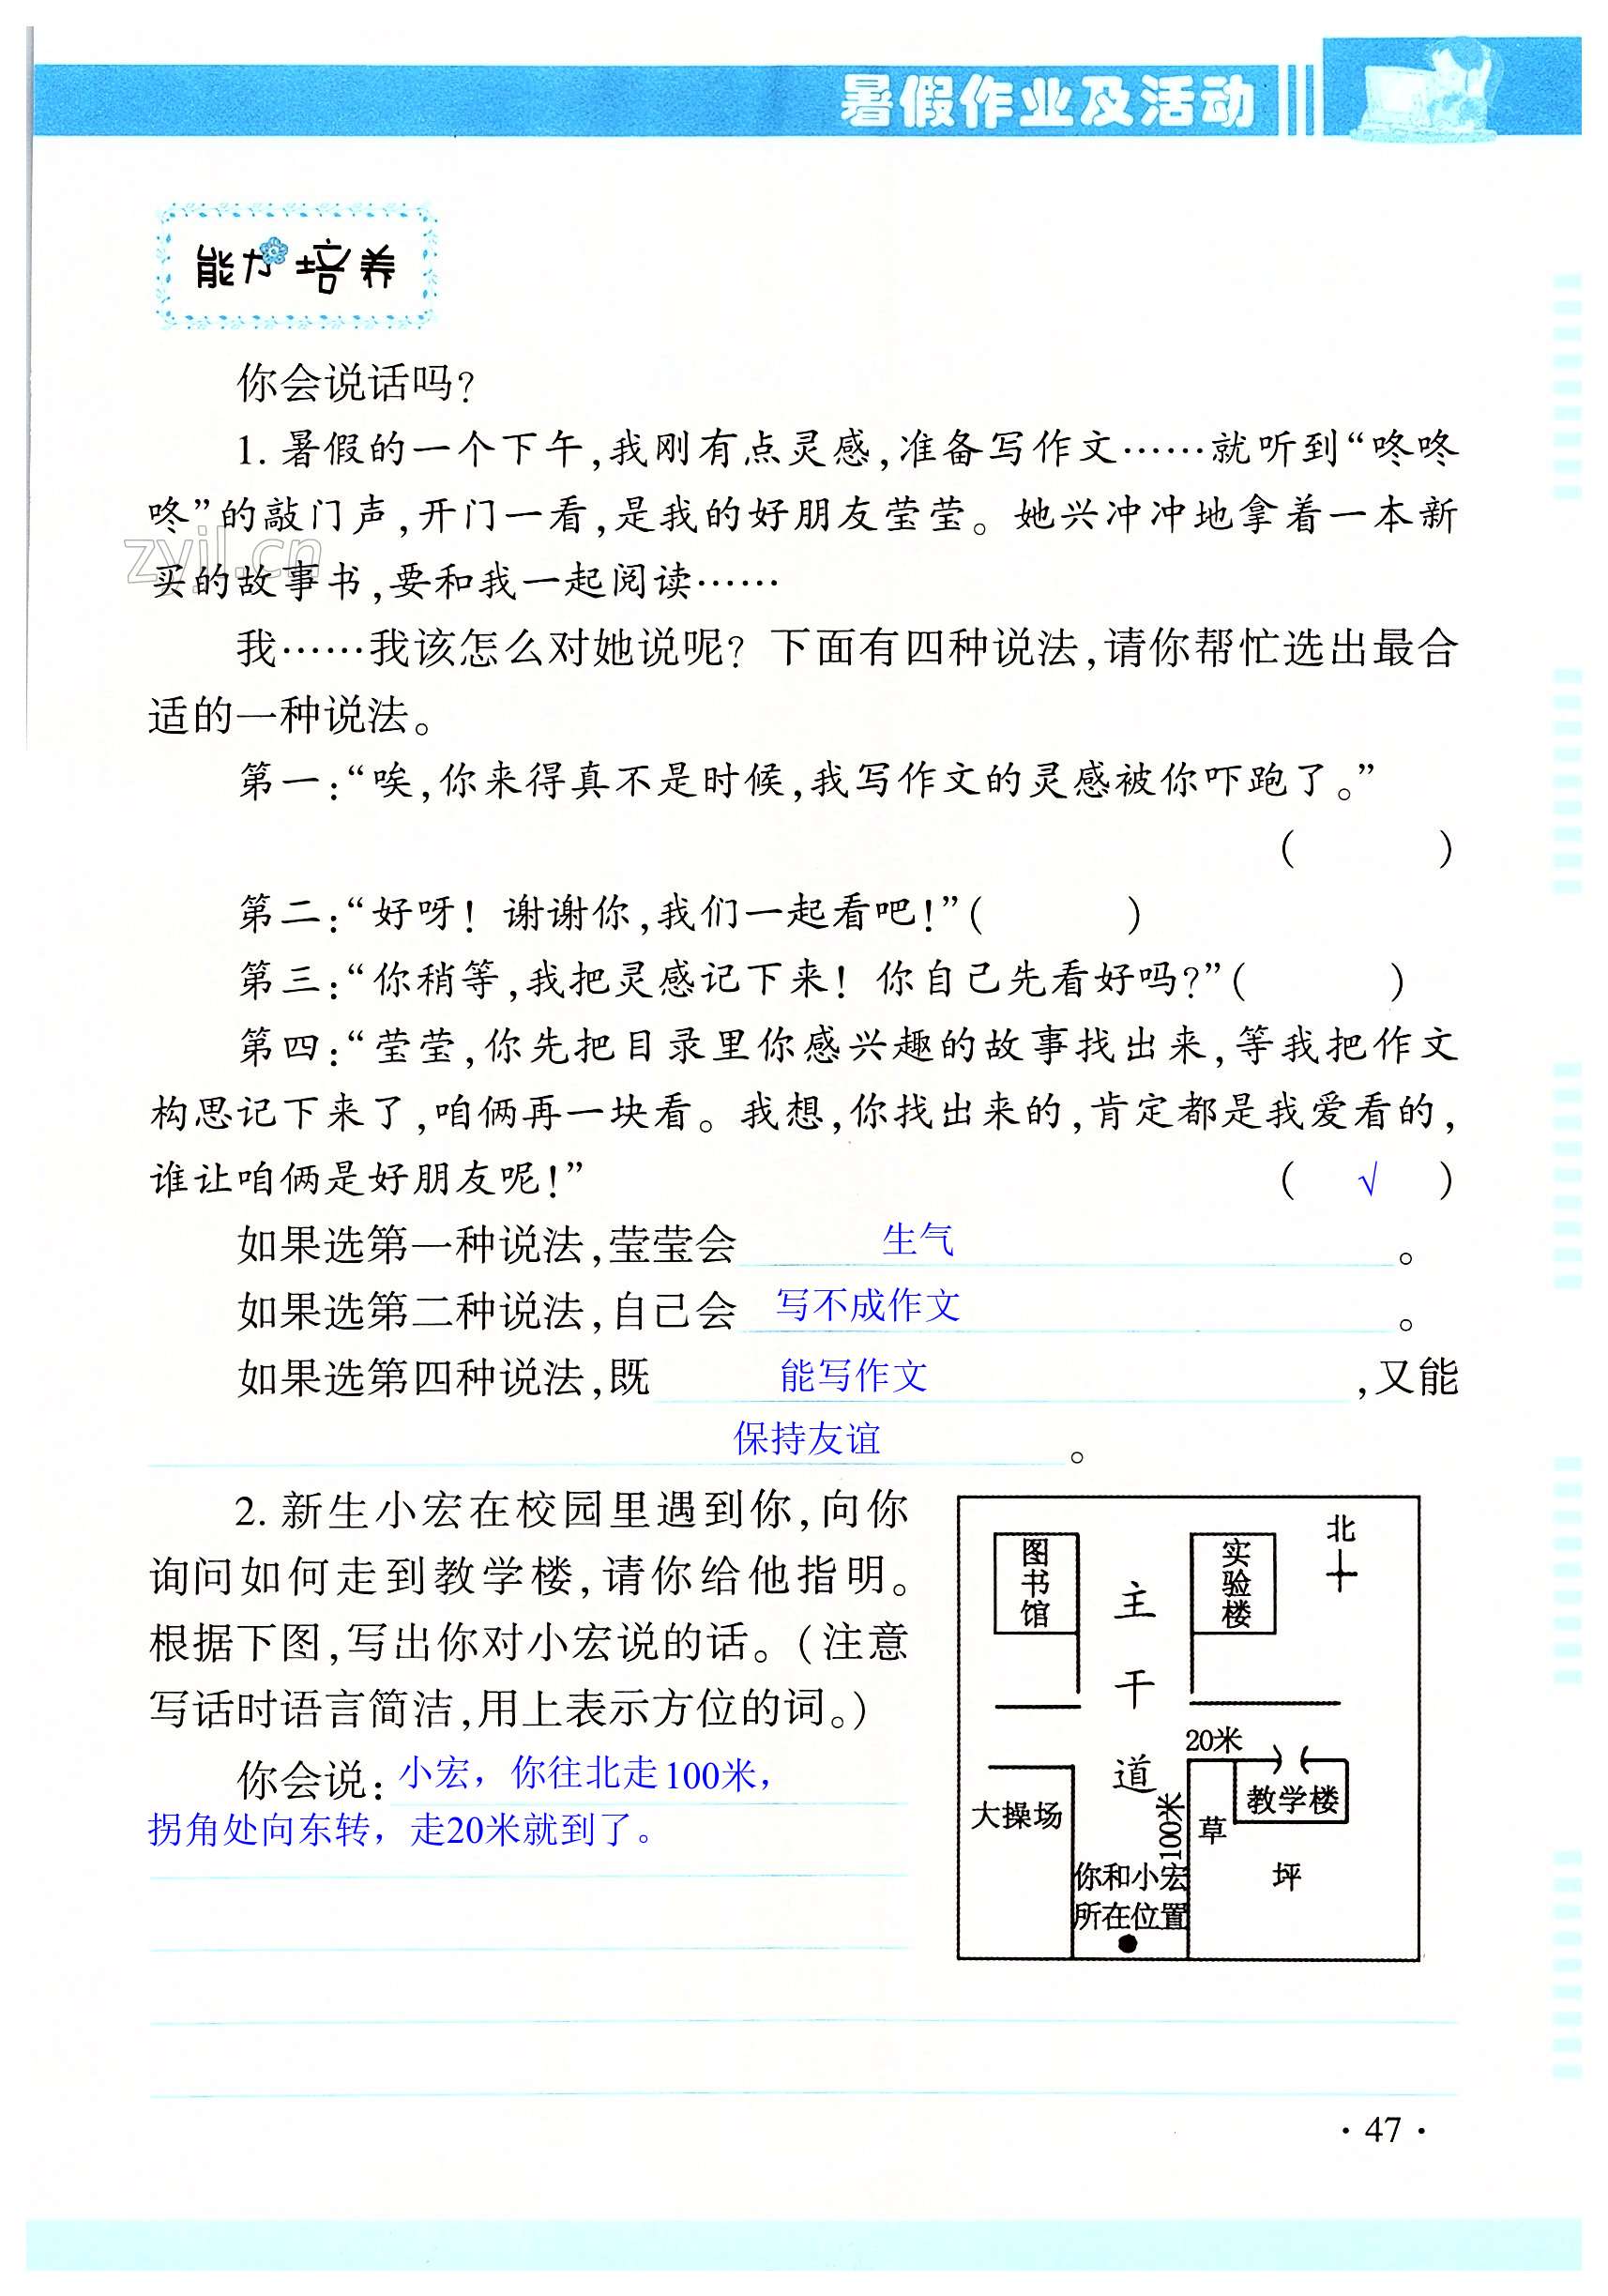 暑假作业及活动
能力培养
你会说话吗?
1. 暑假的一个下午,我刚有点灵感,准备写作文……就听到“咚咚
咚”的敲门声,开门一看,是我的好朋友莹莹。她兴冲冲地拿着一本新
买的故事书,要和我一起阅读……
zyjl.cn
我……我该怎么对她说呢? 下面有四种说法,请你帮忙选出最合
适的一种说法。
第一:“唉,你来得真不是时候,我写作文的灵感被你吓跑了。”
(　　)
第二:“好呀! 谢谢你,我们一起看吧!”(　　)
第三:“你稍等,我把灵感记下来! 你自己先看好吗?”(　　)
第四:“莹莹,你先把目录里你感兴趣的故事找出来,等我把作文
构思记下来了,咱俩再一块看。我想,你找出来的,肯定都是我爱看的,
谁让咱俩是好朋友呢!” ( √ )
如果选第一种说法,莹莹会 生气 。
如果选第二种说法,自己会 写不成作文 。
如果选第四种说法,既 能写作文 ,又能
保持友谊 。
2. 新生小宏在校园里遇到你,向你
询问如何走到教学楼,请你给他指明。
根据下图,写出你对小宏说的话。(注意
写话时语言简洁,用上表示方位的词。)
你会说: 小宏，你往北走100米，
拐角处向东转，走20米就到了。
图书馆
主干道
实验楼
北
20米
教学楼
大操场
100米
草坪
你和小宏
所在位置
· 47 ·